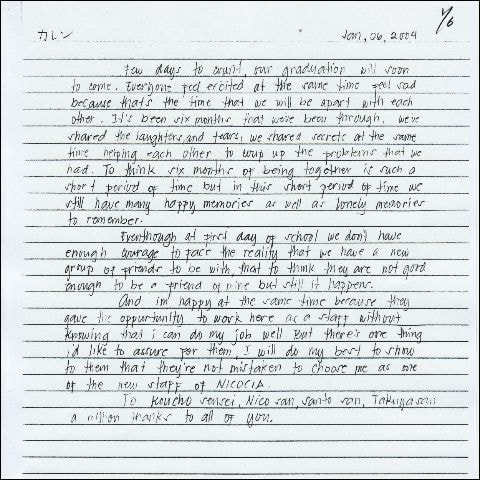 1/6
カレン Jan, 06, 2004
Few days to count, our graduation will soon
to come. Everyone feel excited at the same time feel sad
because that's the time that we will be apart with each
other. It's been six months that we've been through, we've
shared the laughters, and tears, we shared secrets at the same
time helping each other to up the problems that we
had. To think six months of being together is such a
short period of time but in this short period of time we
still have many happy memories as well as lonely memories
to remember.
Eventhough at first day of school we don't have
enough courage to face the reality that we have a new
group of friends to be with, that to think they are not good
enough to be a friend of mine but still it happens.
And im happy at the same time because they
gave the oppurtunity to work here as a staff without
knowing that i can do my job well But there's one thing
i'd like to assure for them, I will do my best to show
to them that they're not mistaken to choose me as one
of the new staff of NICOCIA.
To Koucho sensei, Nico san, santo san, Takuya san
a million thanks to all of you.